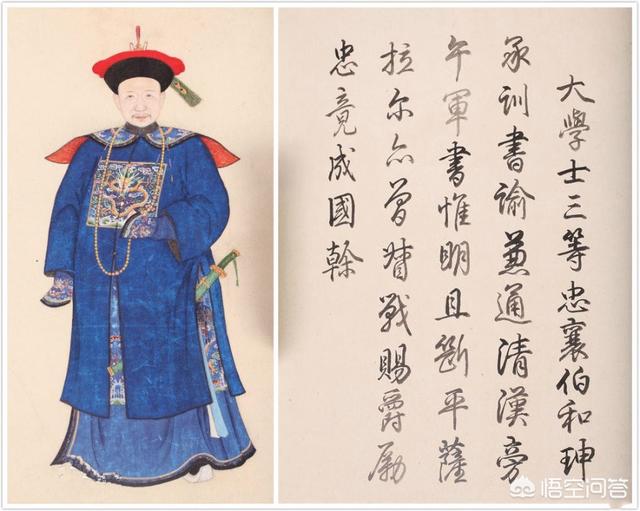 大學士三等忠襄伯和珅
承訓書諭兼通清漢旁
午軍書惟明且斷平薩
拉尔亦曾督戰賜爵勵
忠竟成國榦
悟空问答